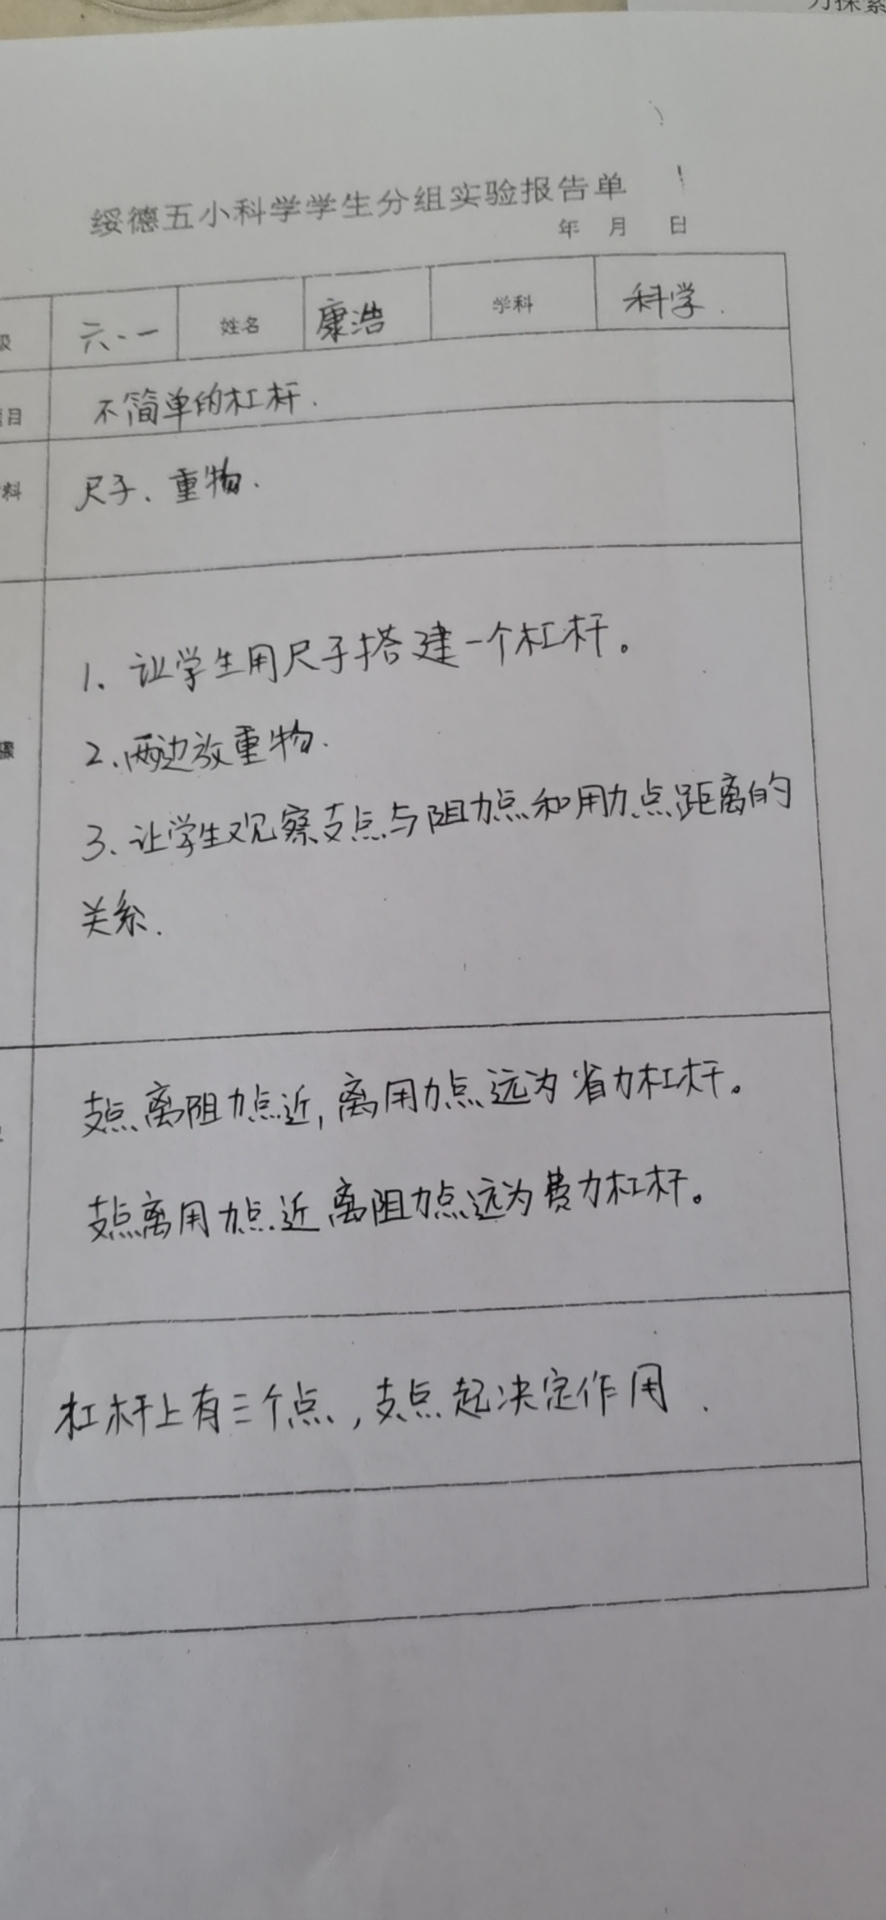 力探索
绥德五小科学学生分组实验报告单
年 月 日
级 六.一 姓名 康浩 学科 科学.
目 不简单的杠杆.
料 尺子、重物.
骤
1、让学生用尺子搭建一个杠杆。
2、两边放重物.
3、让学生观察支点与阻力点和用力点距离的
关系.
支点离阻力点近,离用力点远为省力杠杆。
支点离用力点近离阻力点远为费力杠杆。
杠杆上有三个点,支点起决定作用.